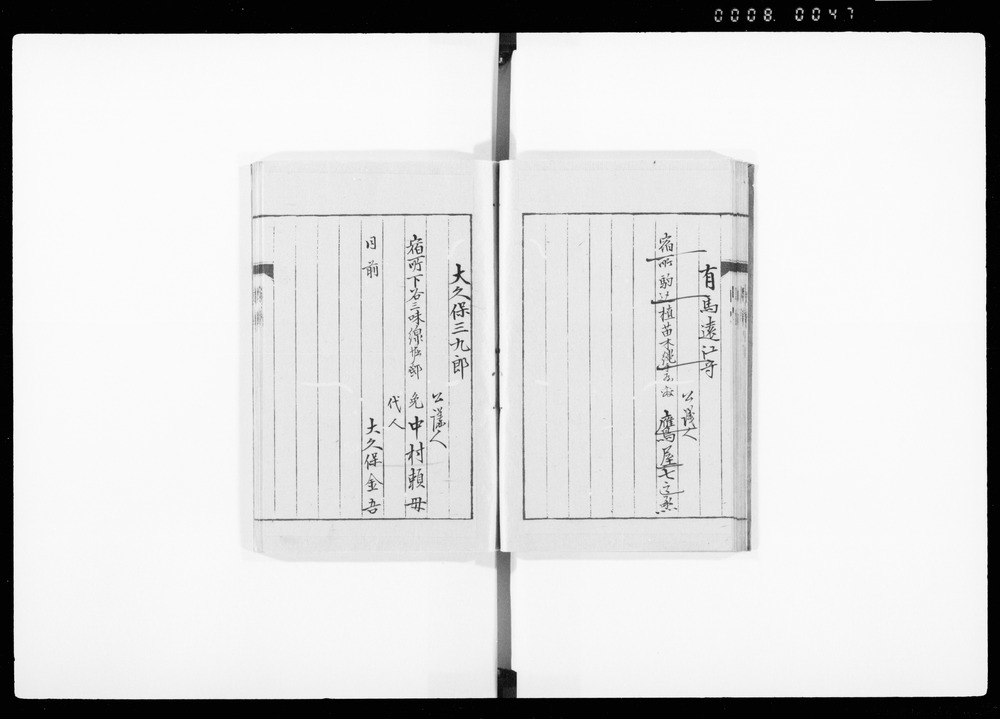 0008 0047
有馬遠江守
公議人
宿所駒込植苗木縄手
鷹屋七之丞
大久保三九郎
公議人
宿所下谷三味線堀邸 免 中村頼母
代人
同前 大久保金吾